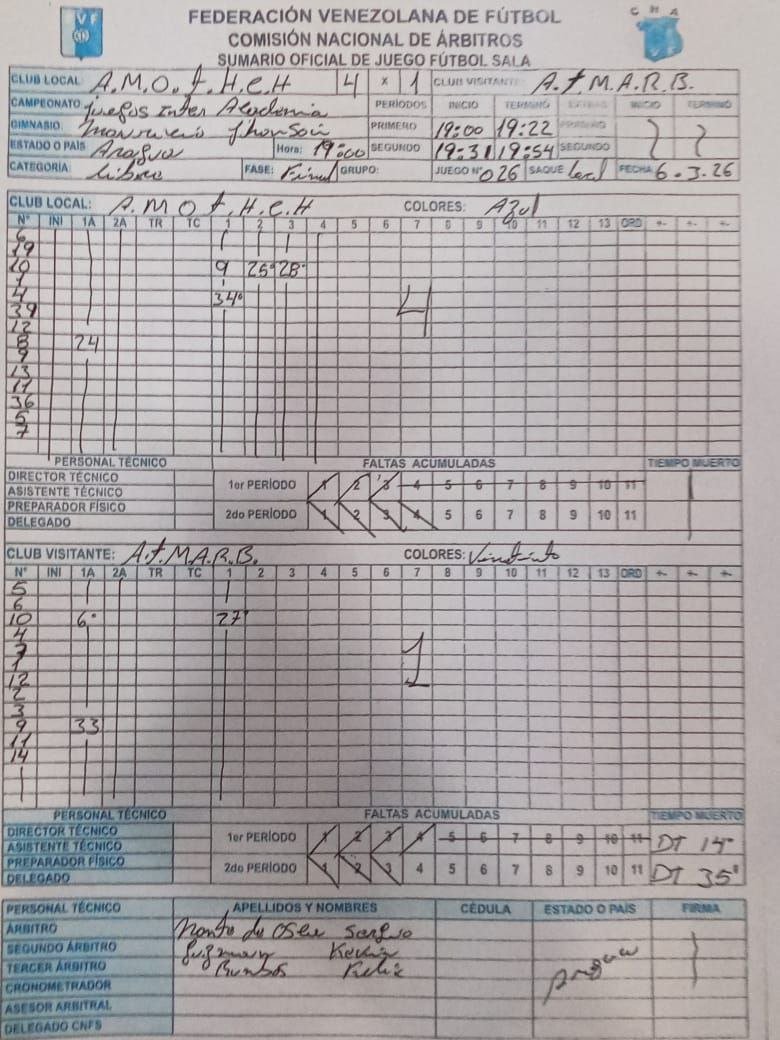 FEDERACIÓN VENEZOLANA DE FÚTBOL
COMISIÓN NACIONAL DE ÁRBITROS
SUMARIO OFICIAL DE JUEGO FÚTBOL SALA
VF
C N A
VF
CLUB LOCAL A.M.O.f.H.C.H 4 x 1 CLUB VISITANTE A.f.M.A.R.B.
CAMPEONATO Juegos Inter Academia PERÍODOS INICIO TERMINÓ EXTRAS INICIO TERMINÓ
GIMNASIO PRIMERO 19:00 19:22 PRIMERO
ESTADO O PAÍS Aragua Hora: 19:00 SEGUNDO 19:31 19:54 SEGUNDO
CATEGORÍA Libre FASE: Final GRUPO: JUEGO Nº 026 SAQUE Local FECHA 6.3.26
CLUB LOCAL: A.M.O.f.H.C.H COLORES: Azul
Nº INI 1A 2A TR TC 1 2 3 4 5 6 7 8 9 10 11 12 13 ORD +- +- +-
6
19
10 9 25° 28°
1
4 34°
39 4
12
8 24
9
13
11
36
5
7
PERSONAL TÉCNICO FALTAS ACUMULADAS TIEMPO MUERTO
DIRECTOR TÉCNICO
ASISTENTE TÉCNICO
1er PERÍODO 1 2 3 4 5 6 7 8 9 10 11
PREPARADOR FÍSICO
DELEGADO
2do PERÍODO 1 2 3 4 5 6 7 8 9 10 11
CLUB VISITANTE: A.f.M.A.R.B. COLORES: Vinotinto
Nº INI 1A 2A TR TC 1 2 3 4 5 6 7 8 9 10 11 12 13 ORD +- +- +-
5
6
10 6° 27°
4
7
1 1
12
2
3
9 33
11
14
PERSONAL TÉCNICO FALTAS ACUMULADAS TIEMPO MUERTO
DIRECTOR TÉCNICO
ASISTENTE TÉCNICO
1er PERÍODO 1 2 3 4 5 6 7 8 9 10 11 DT 14°
PREPARADOR FÍSICO
DELEGADO
2do PERÍODO 1 2 3 4 5 6 7 8 9 10 11 DT 35°
PERSONAL TÉCNICO APELLIDOS Y NOMBRES CÉDULA ESTADO O PAÍS FIRMA
ÁRBITRO
SEGUNDO ÁRBITRO Guzman Kevin
TERCER ÁRBITRO Felix
CRONOMETRADOR Aragua
ASESOR ARBITRAL
DELEGADO CNFS